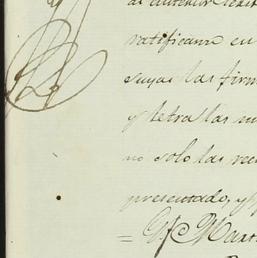 al anterior
ratifican en
suyas las firm
y letra las m
no solo las rec
presentado, y
= Mart